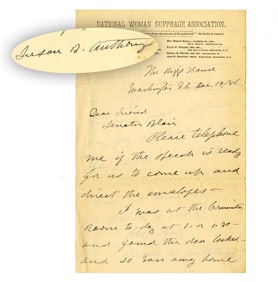 Susan B. Anthony
NATIONAL WOMAN SUFFRAGE ASSOCIATION.
The Riggs House
Washington D.C. Dec.
Dear Friend
Senator Blair
Please telephone
me if the speech is ready
for us to come up and
direct the envelopes -
I was at the Committee
Room to-day at 1. or 1.30 -
and found the door locked -
and so ran away home